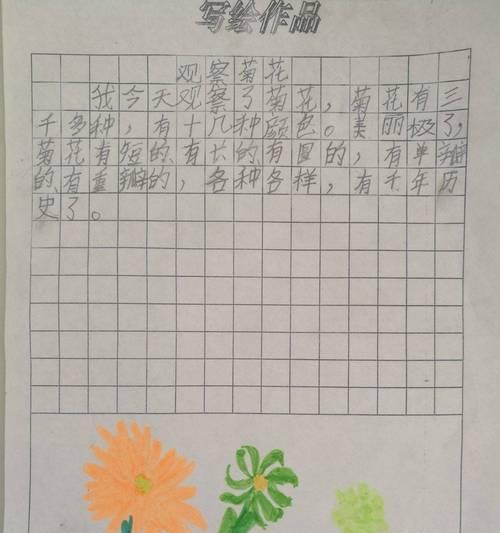 写绘作品
观察菊花
我今天观察了菊花，菊花有三
千多种，有十几种颜色。美丽极了，
菊花有短的、有长的、有圆的，有单瓣
的、有重瓣的，各种各样，有千年历
史了。